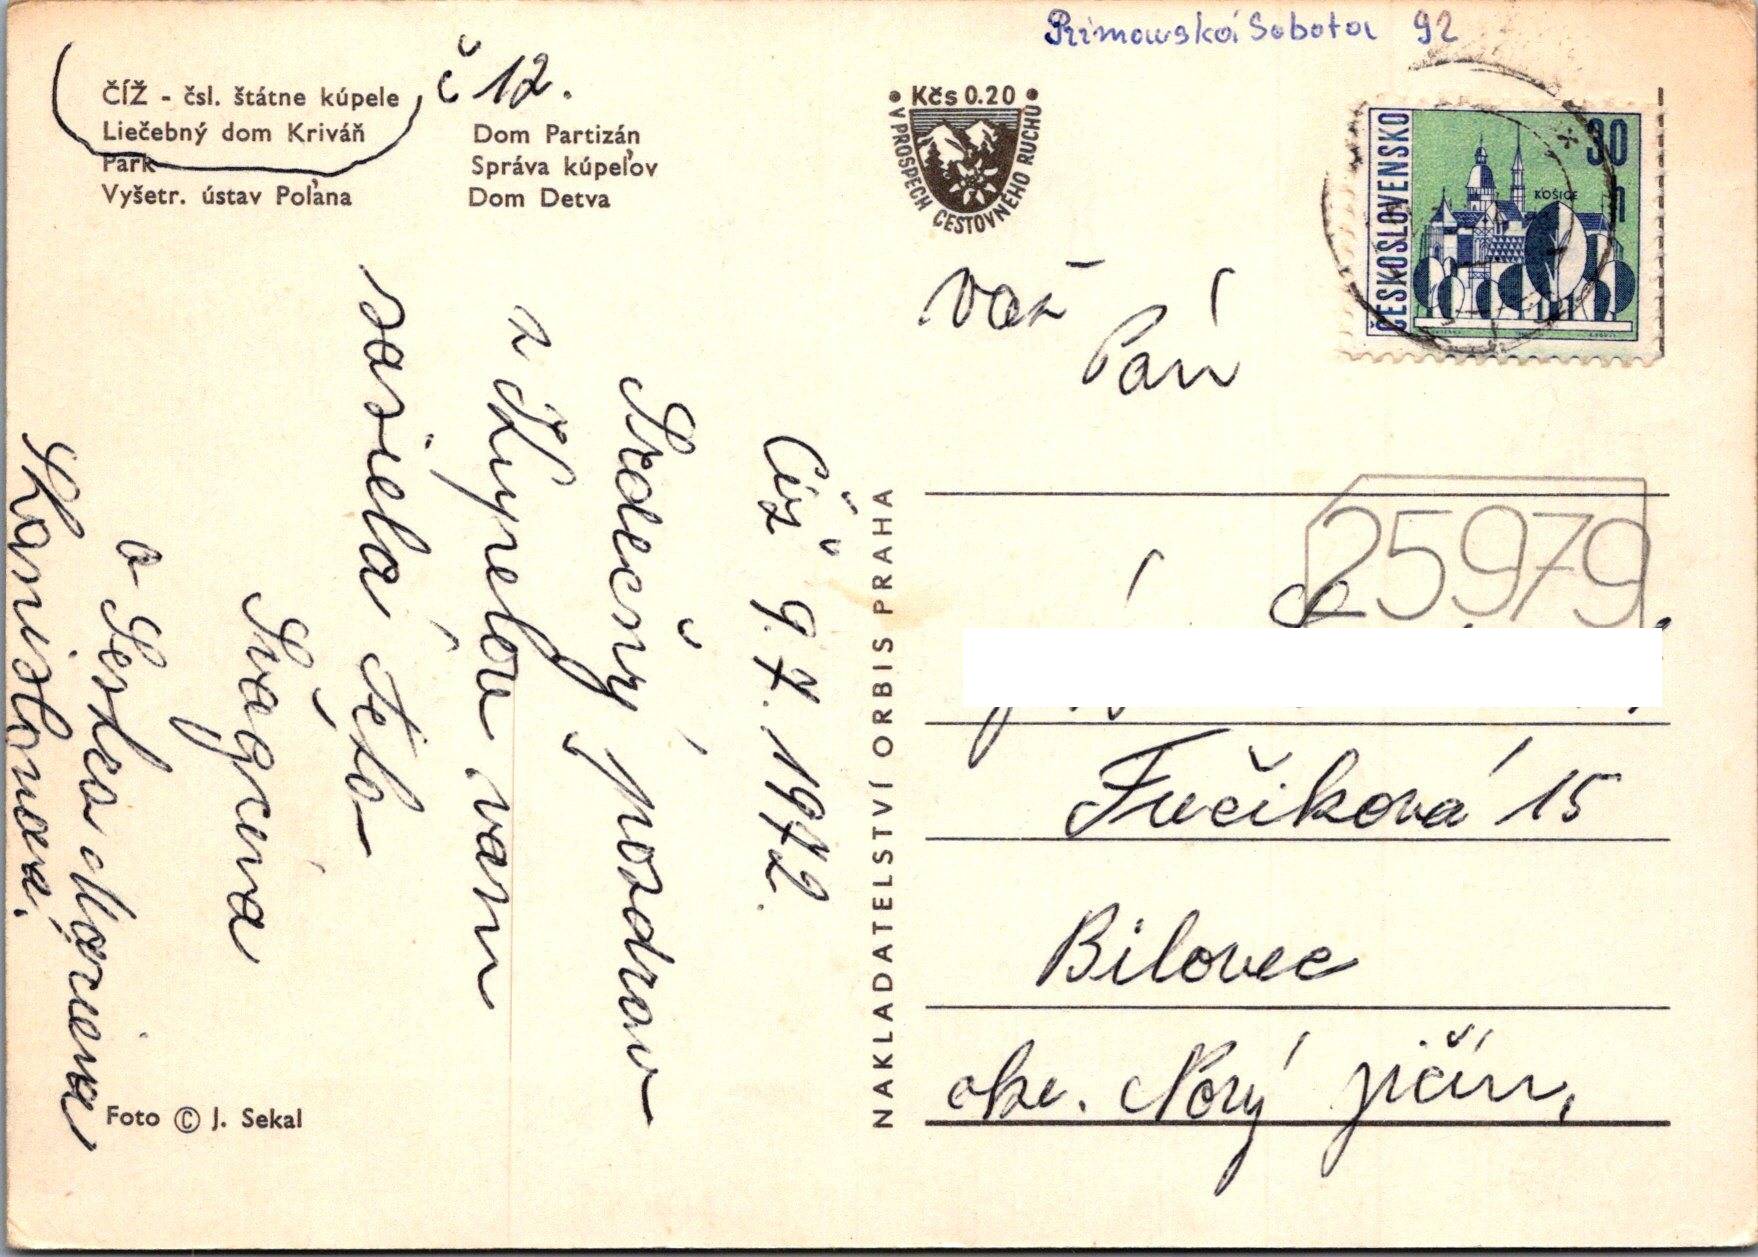 Rimavská Sobota 92
ČÍŽ - čsl. štátne kúpele
Liečebný dom Kriváň
Park
Vyšetr. ústav Poľana
č 12.
Dom Partizán
Správa kúpeľov
Dom Detva
Kčs 0.20
V PROSPECH CESTOVNÉHO RUCHU
ČESKOSLOVENSKO
30
h
KOŠICE
Číž 9.7.1972.
Srdečný pozdrav
z Kupelov vam
sasiela Teto
Švagrina
a Sestra
NAKLADATELSTVÍ ORBIS PRAHA
Foto © J. Sekal
Vaš
Pán
25979
Fučiková 15
Bilovec
okr. Nový jičín,